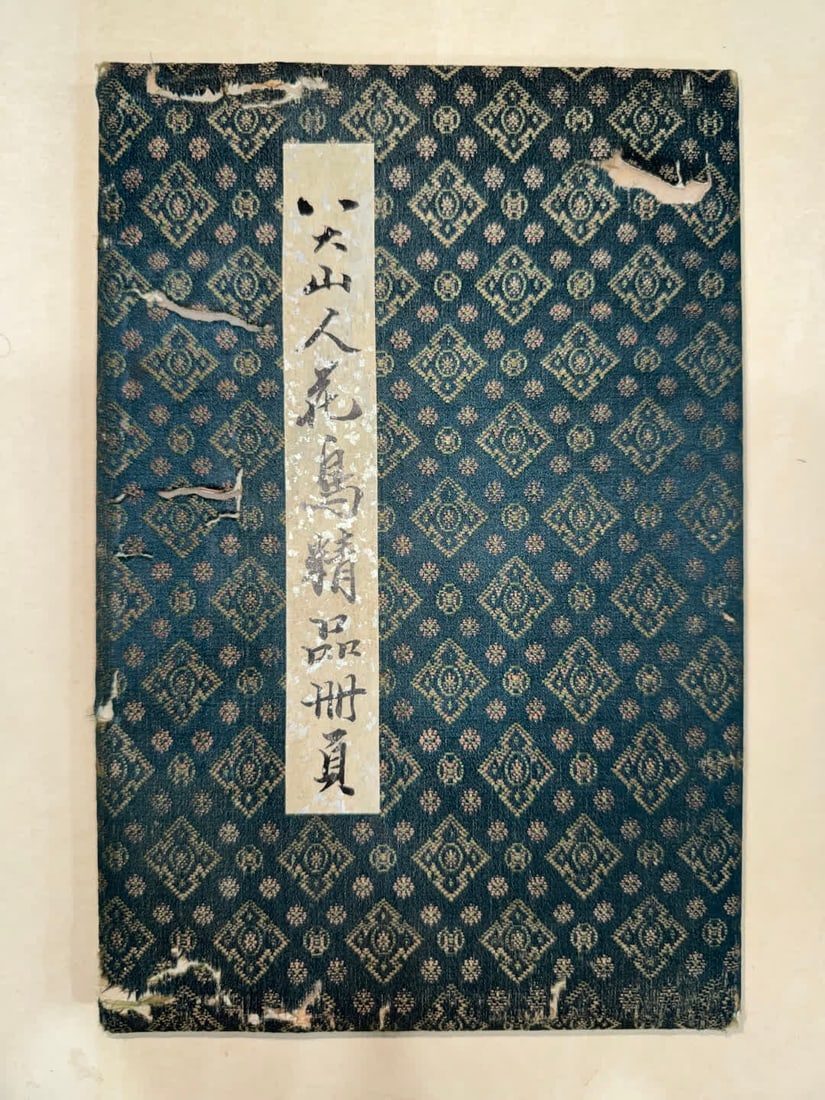 八大山人花鳥精品冊頁